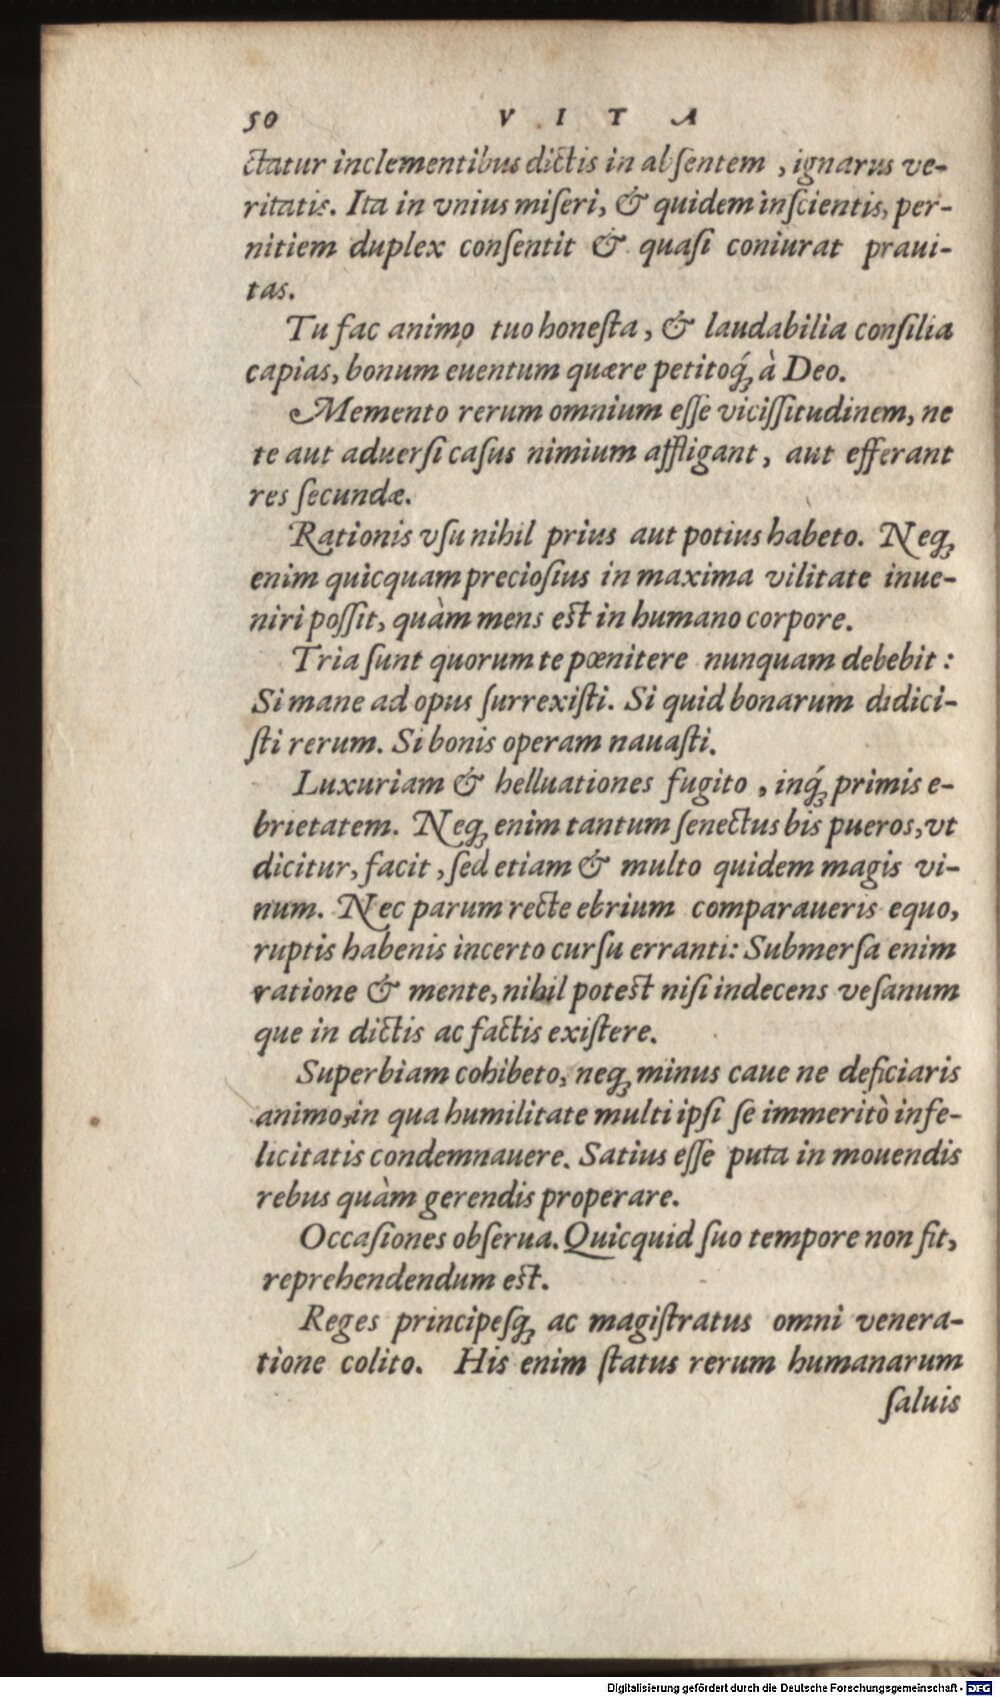 50 VITA
ctatur inclementibus dictis in absentem, ignarus ve-
ritatis. Ita in vnius miseri, & quidem inscientis, per-
nitiem duplex consentit & quasi coniurat praui-
tas.
Tu fac animo tuo honesta, & laudabilia consilia
capias, bonum euentum quære petitoq́ꝫ à Deo.
Memento rerum omnium esse vicissitudinem, ne
te aut aduersi casus nimium affligant, aut efferant
res secundæ.
Rationis vsu nihil prius aut potius habeto. Neqꝫ
enim quicquam preciosius in maxima vilitate inue-
niri possit, quàm mens est in humano corpore.
Tria sunt quorum te pœnitere nunquam debebit:
Si mane ad opus surrexisti. Si quid bonarum didici-
sti rerum. Si bonis operam nauasti.
Luxuriam & helluationes fugito, inq́ꝫ primis e-
brietatem. Neqꝫ enim tantum senectus bis pueros, vt
dicitur, facit, sed etiam & multo quidem magis vi-
num. Nec parum recte ebrium comparaueris equo,
ruptis habenis incerto cursu erranti: Submersa enim
ratione & mente, nihil potest nisi indecens vesanum
que in dictis ac factis existere.
Superbiam cohibeto, neqꝫ minus caue ne deficiaris
animo, in qua humilitate multi ipsi se immeritò infe-
licitatis condemnauere. Satius esse puta in mouendis
rebus quàm gerendis properare.
Occasiones obserua. Quicquid suo tempore non fit,
reprehendendum est.
Reges principesqꝫ ac magistratus omni venera-
tione colito. His enim status rerum humanarum
saluis
Digitalisierung gefördert durch die Deutsche Forschungsgemeinschaft - DFG